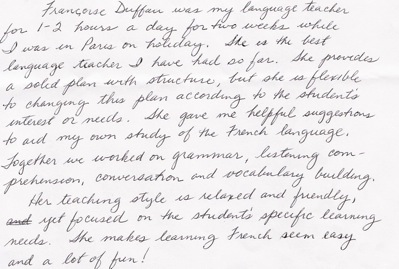 Françoise Duffau was my language teacher
for 1-2 hours a day for two weeks while
I was in Paris on holiday. She is the best
language teacher I have had so far. She provides
a solid plan with structure, but she is flexible
to changing this plan according to the student's
interest or needs. She gave me helpful suggestions
to aid my own study of the French language.
Together we worked on grammar, listening com-
prehension, conversation and vocabulary building.
Her teaching style is relaxed and friendly,
and yet focused on the student's specific learning
needs. She makes learning French seem easy
and a lot of fun!